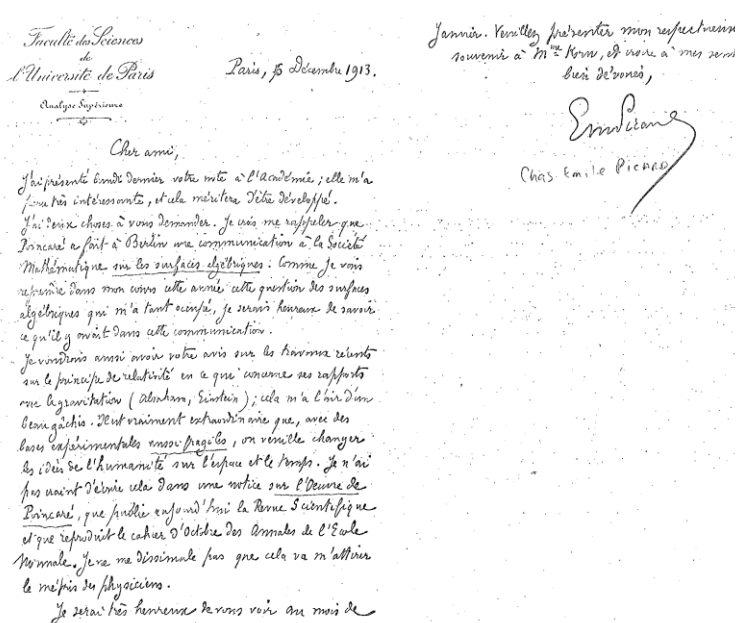 Faculté des Sciences
de
l'Université de Paris
Analyse Supérieure
Paris, 15 Décembre 1913.
Cher ami,
J'ai présenté lundi dernier votre note à l'Académie ; elle m'a
paru très intéressante, et cela méritera d'être développé.
J'ai deux choses à vous demander. Je crois me rappeler que
Poincaré a fait à Berlin une communication à la Société
Mathématique sur les surfaces algébriques : Comme je vais
reprendre dans mon cours cette année cette question des surfaces
algébriques qui m'a tant occupé, je serais heureux de savoir
ce qu'il y avait dans cette communication.
Je voudrais aussi avoir votre avis sur les travaux récents
sur le principe de relativité en ce qui concerne ses rapports
avec la gravitation (Abraham, Einstein) ; cela m'a l'air d'un
beau gâchis. Il est vraiment extraordinaire que, avec des
bases expérimentales aussi fragiles, on veuille changer
les idées de l'humanité sur l'espace et le temps. Je n'ai
pas craint d'écrire cela dans une notice sur l'Oeuvre de
Poincaré, que publie aujourd'hui la Revue Scientifique
et que reproduit le cahier d'Octobre des Annales de l'Ecole
Normale. Je ne me dissimule pas que cela va m'attirer
le mépris des physiciens.
Je serai très heureux de vous voir au mois de
Janvier. Veuillez présenter mon respectueux
souvenir à Mme Korn, et croire à mes sent
bien dévoués,
Emile Picard
Chas. Emile Picard